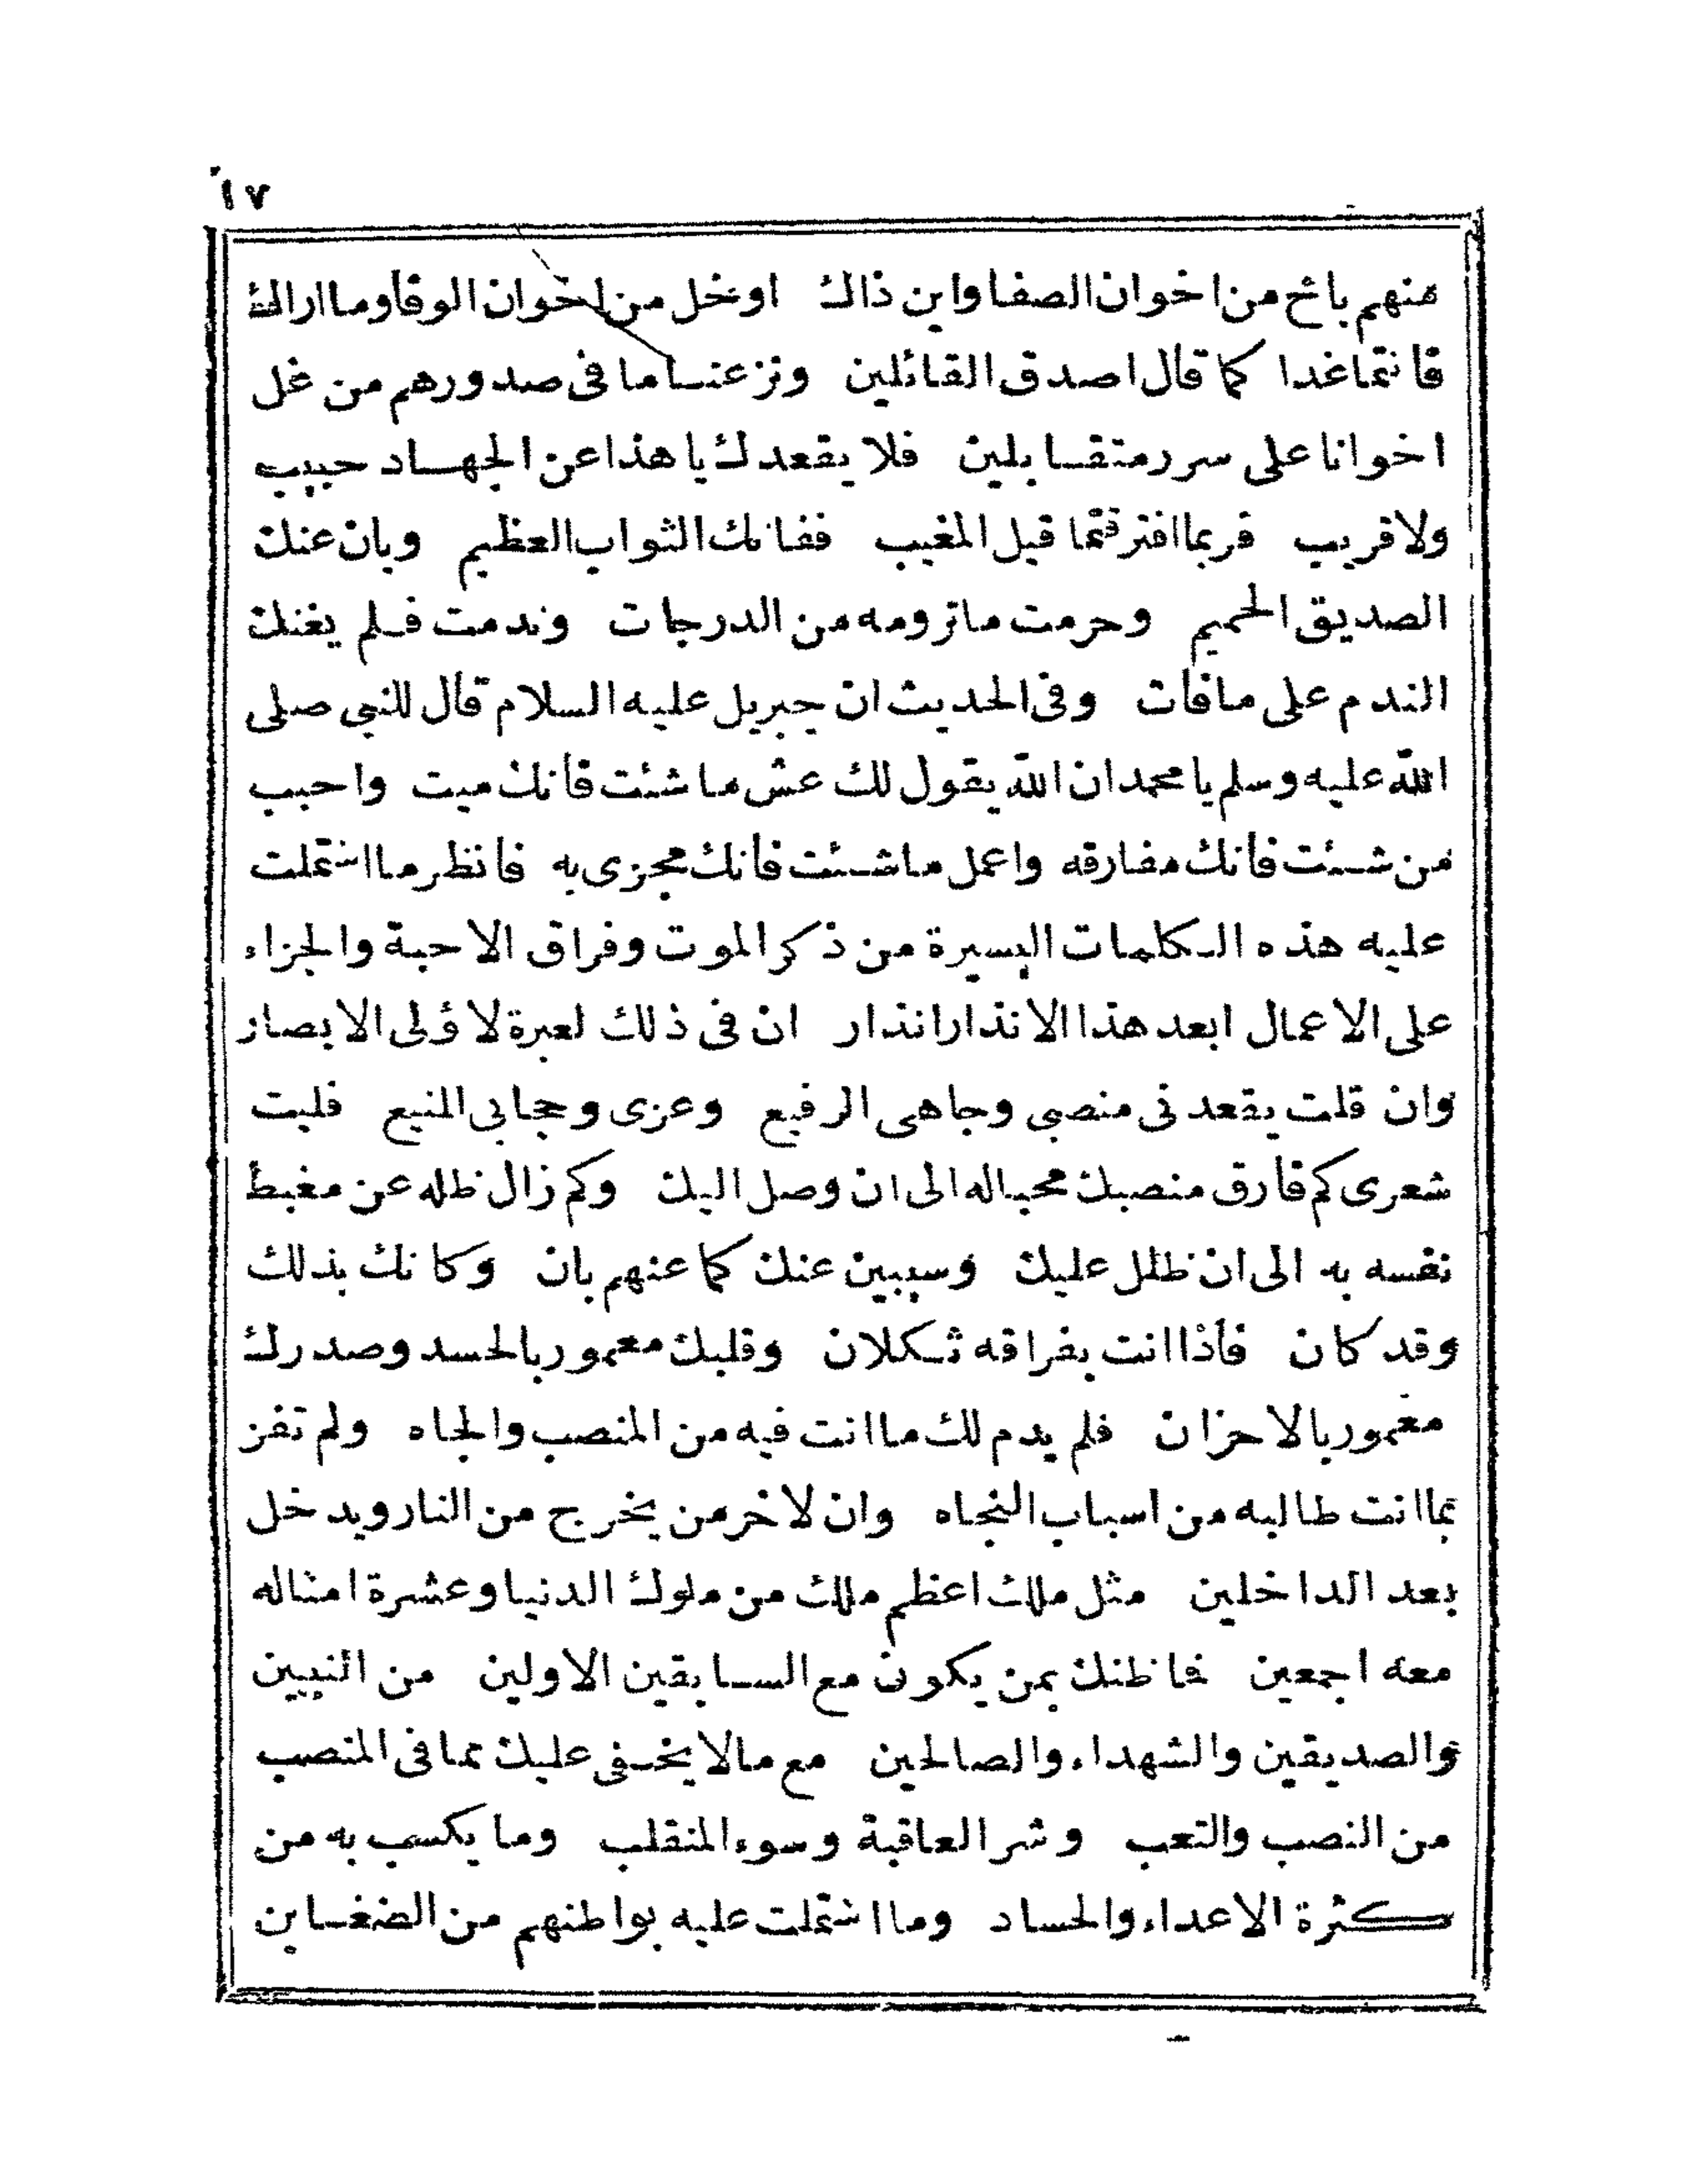 ١٧
منهم باخ من اخوان الصفا واين ذاك اوبخل من اخوان الوفا وما اراك
فانتما غدا كما قال اصدق القائلين ونزعنا ما فى صدورهم من غل
اخوانا على سرر متقابلين فلا يقعدك يا هذا عن الجهاد حبيب
ولا قريب فربما افترقتما قبل المغيب ففاتك الثواب العظيم وبان عنك
الصديق الحميم وحرمت ما ترومه من الدرجات وندمت فلم يغنك
الندم على ما فات وفى الحديث ان جبريل عليه السلام قال للنبى صلى
الله عليه وسلم يا محمد ان الله يقول لك عش ما شئت فانك ميت واحبب
من شئت فانك مفارقه واعمل ما شئت فانك مجزى به فانظر ما اشتملت
عليه هذه الكلمات اليسيرة من ذكر الموت وفراق الاحبة والجزاء
على الاعمال ابعد هذا الانذار انذار ان فى ذلك لعبرة لاولى الابصار
وان قلت يقعدنى منصبى وجاهى الرفيع وعزى وحجابى المنيع فليت
شعرى كم فارق منصبك محباله الى ان وصل اليك وكم زال ظله عن مغبط
نفسه به الى ان ظلل عليك وسيبين عنك كما عنهم بان وكانك بذلك
وقد كان فاذا انت بفراقه ثكلان وقلبك معمور بالحسد وصدرك
مغمور بالاحزان فلم يدم لك ما انت فيه من المنصب والجاه ولم تفز
بما انت طالبه من اسباب النجاه وان لاخر من يخرج من النار ويدخل
بعد الداخلين مثل ملك اعظم ملك من ملوك الدنيا وعشرة امثاله
معه اجمعين فما ظنك بمن يكون مع السابقين الاولين من النبيين
والصديقين والشهداء والصالحين مع ما لا يخفى عليك مما فى المنصب
من النصب والتعب وشر العاقبة وسوء المنقلب وما يكسب به من
كثرة الاعداء والحساد وما اشتملت عليه بواطنهم من الضغاين